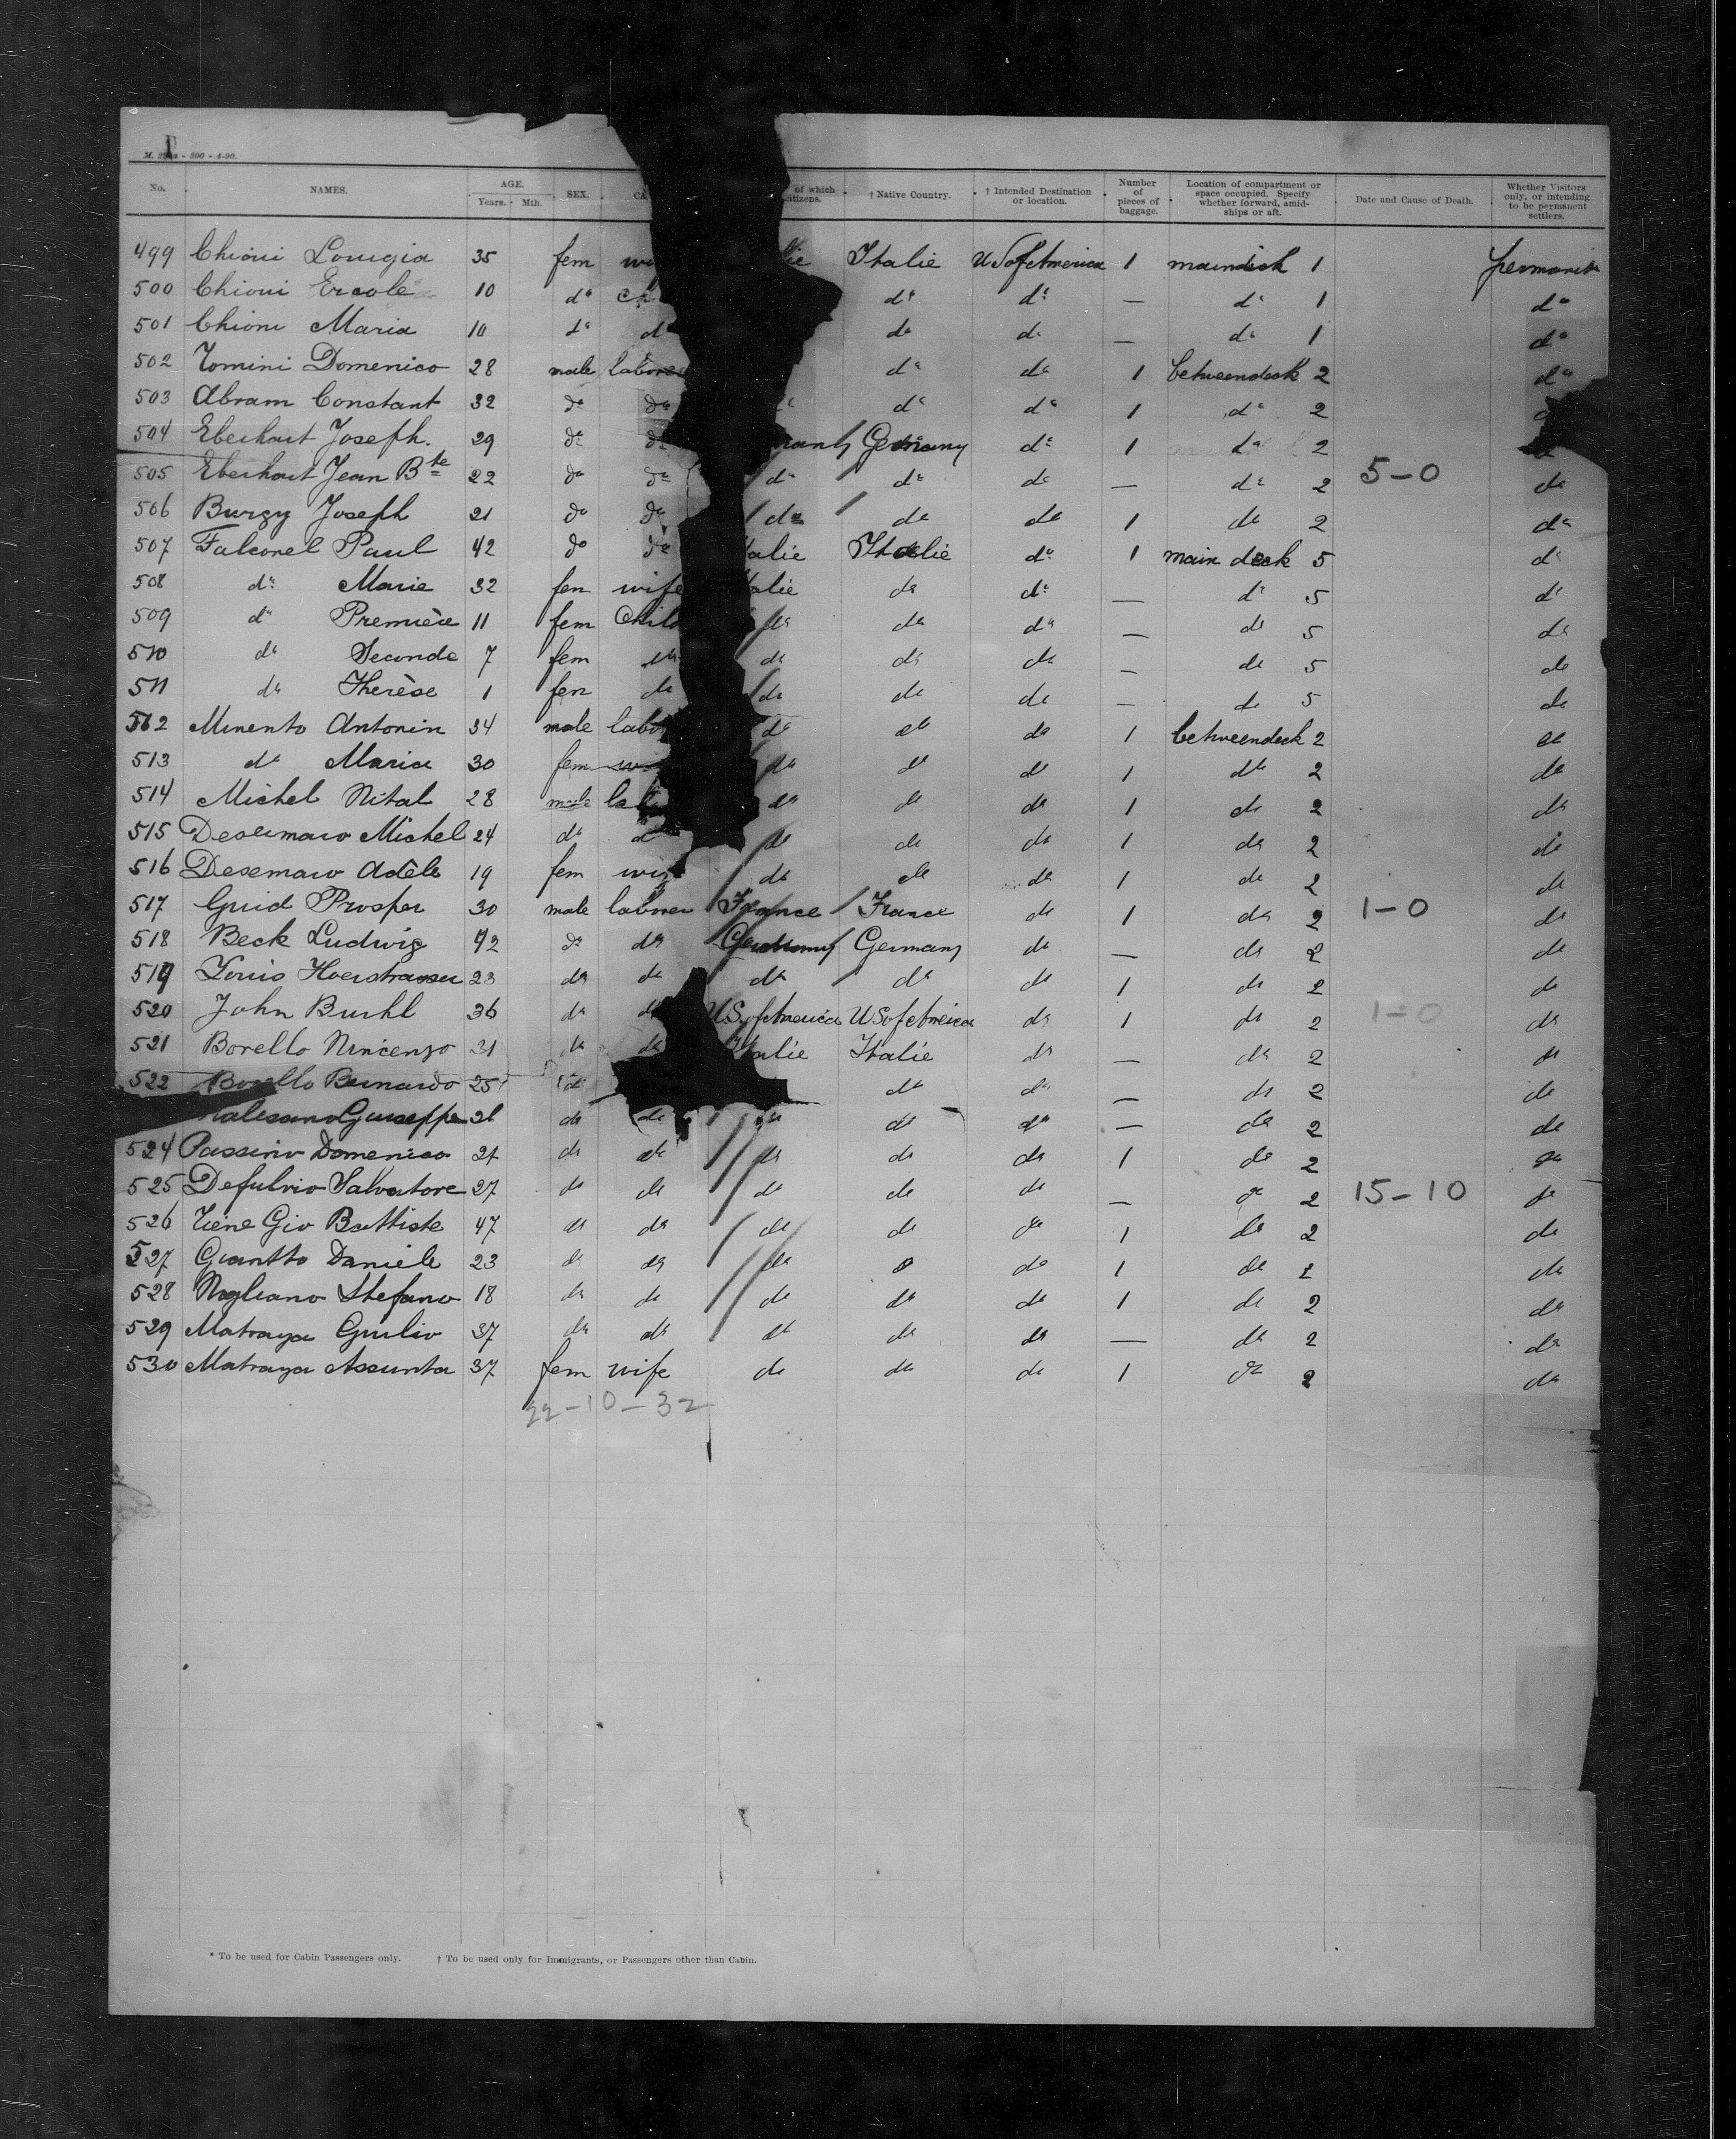 M. - 300 - 4-90.
No. NAMES. AGE. Years. Mth. SEX. CA of which citizens. † Native Country. † Intended Destination or location. Number of pieces of baggage. Location of compartment or space occupied. Specify whether forward, amidships or aft. Date and Cause of Death. Whether Visitors only, or intending to be permanent settlers.
499 Chioni Louigia 35 fem wi lie Italie US of America 1 maindeck 1 permanent
500 Chioni Ercole 10 do ch do do — do 1 do
501 Chioni Maria 10 do do do do — do 1 do
502 Tomini Domenico 28 male laborer do do 1 betweendeck 2 do
503 Abram Constant 32 do do do do 1 do 2
504 Eberhart Joseph. 29 do do Germany do 1 do 2 do
505 Eberhart Jean Bte 22 do do do do do — do 2 5-0 do
506 Burgy Joseph 21 do do do do do 1 do 2 do
507 Falconel Paul 42 do do talie Italie do 1 main deck 5 do
508 do Marie 32 fem wife talie do do — do 5 do
509 do Première 11 fem Child do do do — do 5 do
510 do Seconde 7 fem do do do do — do 5 do
511 do Therèse 1 fem do do do do — do 5 do
512 Minento Antonin 34 male labor do do do 1 betweendeck 2 do
513 do Maria 30 fem do do do 1 do 2 do
514 Michel Nital 28 male la do do do 1 do 2 do
515 Desermaro Michel 24 do d do do do 1 do 2 do
516 Desemaro Adèle 19 fem wif do do do 1 do 2 do
517 Guid Prosper 30 male laborer France France do 1 do 2 1-0 do
518 Beck Ludwig 42 do do Germany Germany do — do 2 do
519 Louis Hoerstrasser 23 do do do do do 1 do 2 do
520 John Buehl 36 do do US of America US of America do 1 do 2 1-0 do
521 Borello Nincenzo 31 do do Italie Italie do — do 2 do
522 Borello Bernardo 25 do do do — do 2 do
alesano Giuseppe 21 do do do do do — do 2 do
524 Passirio Domenico 21 do do do do do 1 do 2 do
525 Defulvio Salvatore 27 do do do do do — do 2 15-10 do
526 Tiene Gio Battiste 47 do do do do do 1 do 2 do
527 Giantto Daniele 23 do do do do do 1 do 2 do
528 Nogliano Stefano 18 do do do do do 1 do 2 do
529 Matraya Giulio 37 do do do do do — do 2 do
530 Matraya Assunta 37 fem wife do do do 1 do 2 do
22-10-32
* To be used for Cabin Passengers only. † To be used only for Immigrants, or Passengers other than Cabin.